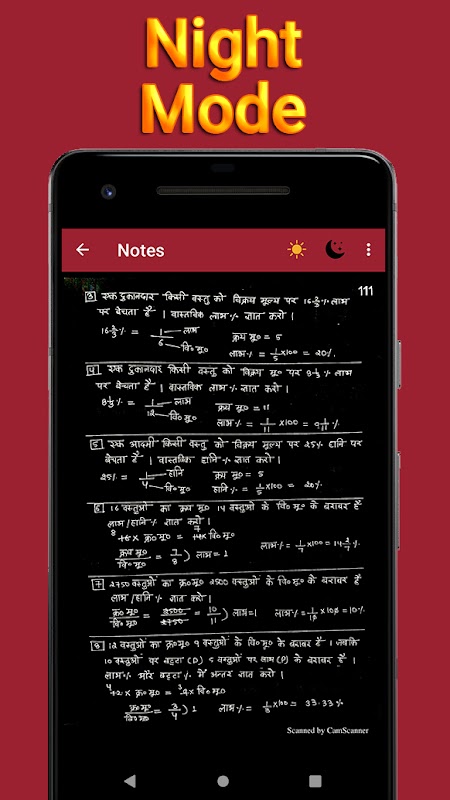 Night
Mode
Notes
111
3 एक दुकानदार किसी वस्तु को विक्रय मूल्य पर 16⅔% लाभ
पर बेचता है । वास्तविक लाभ% ज्ञात करो ।
16⅔% = 1/6 → लाभ / वि॰मू॰
क्रय मू॰ = 5
लाभ% = 1/5 ×100 = 20%.
4 एक दुकानदार किसी वस्तु को विक्रय मू॰ पर 8⅓% लाभ
पर बेचता है । वास्तविक लाभ% ज्ञात करो ।
8⅓% = 1/12 → लाभ / वि॰मू॰
क्रय मू॰ = 11
लाभ% = 1/11 ×100 = 9 1/11 %
5 एक आदमी किसी वस्तु को विक्रय मूल्य पर 25% हानि पर
बेचता है । वास्तविक हानि% ज्ञात करो ।
25% = 1/4 → हानि / वि॰मू॰
क्रय मू॰ = 5
हानि% = 1/5 ×100 = 20%
6 16 वस्तुओं का क्रय मू॰ 14 वस्तुओं के वि॰ मू॰ के बराबर है
लाभ/हानि% ज्ञात करो ।
8 16 × क्र॰मू॰ = 7 14× वि॰मू॰
क्रय मू॰/वि॰मू॰ = 7/8 ) लाभ = 1
लाभ% = 1/7 ×100 = 14 2/7 %
7 2750 वस्तुओं का क्र॰मू॰ 2500 वस्तुओं के वि॰मू॰ के बराबर है
लाभ/हानि% ज्ञात करो ।
क्र॰मू॰/वि॰मू॰ = 2500/2750 = 10/11 ) लाभ=1 लाभ% = 1/10 ×100 = 10%
8 12 वस्तुओं का क्र॰मू॰ 9 वस्तुओं के वि॰मू॰ के बराबर है । जबकि
10 वस्तुओं पर बट्टा (D) 5 वस्तुओं पर लाभ (P) के बराबर है ।
लाभ% और बट्टा% में अन्तर ज्ञात करो ।
4 12 × क्र॰मू॰ = 3 9 × वि॰मू॰
क्र॰मू॰/वि॰मू॰ = 3/4 ) 1 लाभ% = 1/3 ×100 = 33.33%
Scanned by CamScanner